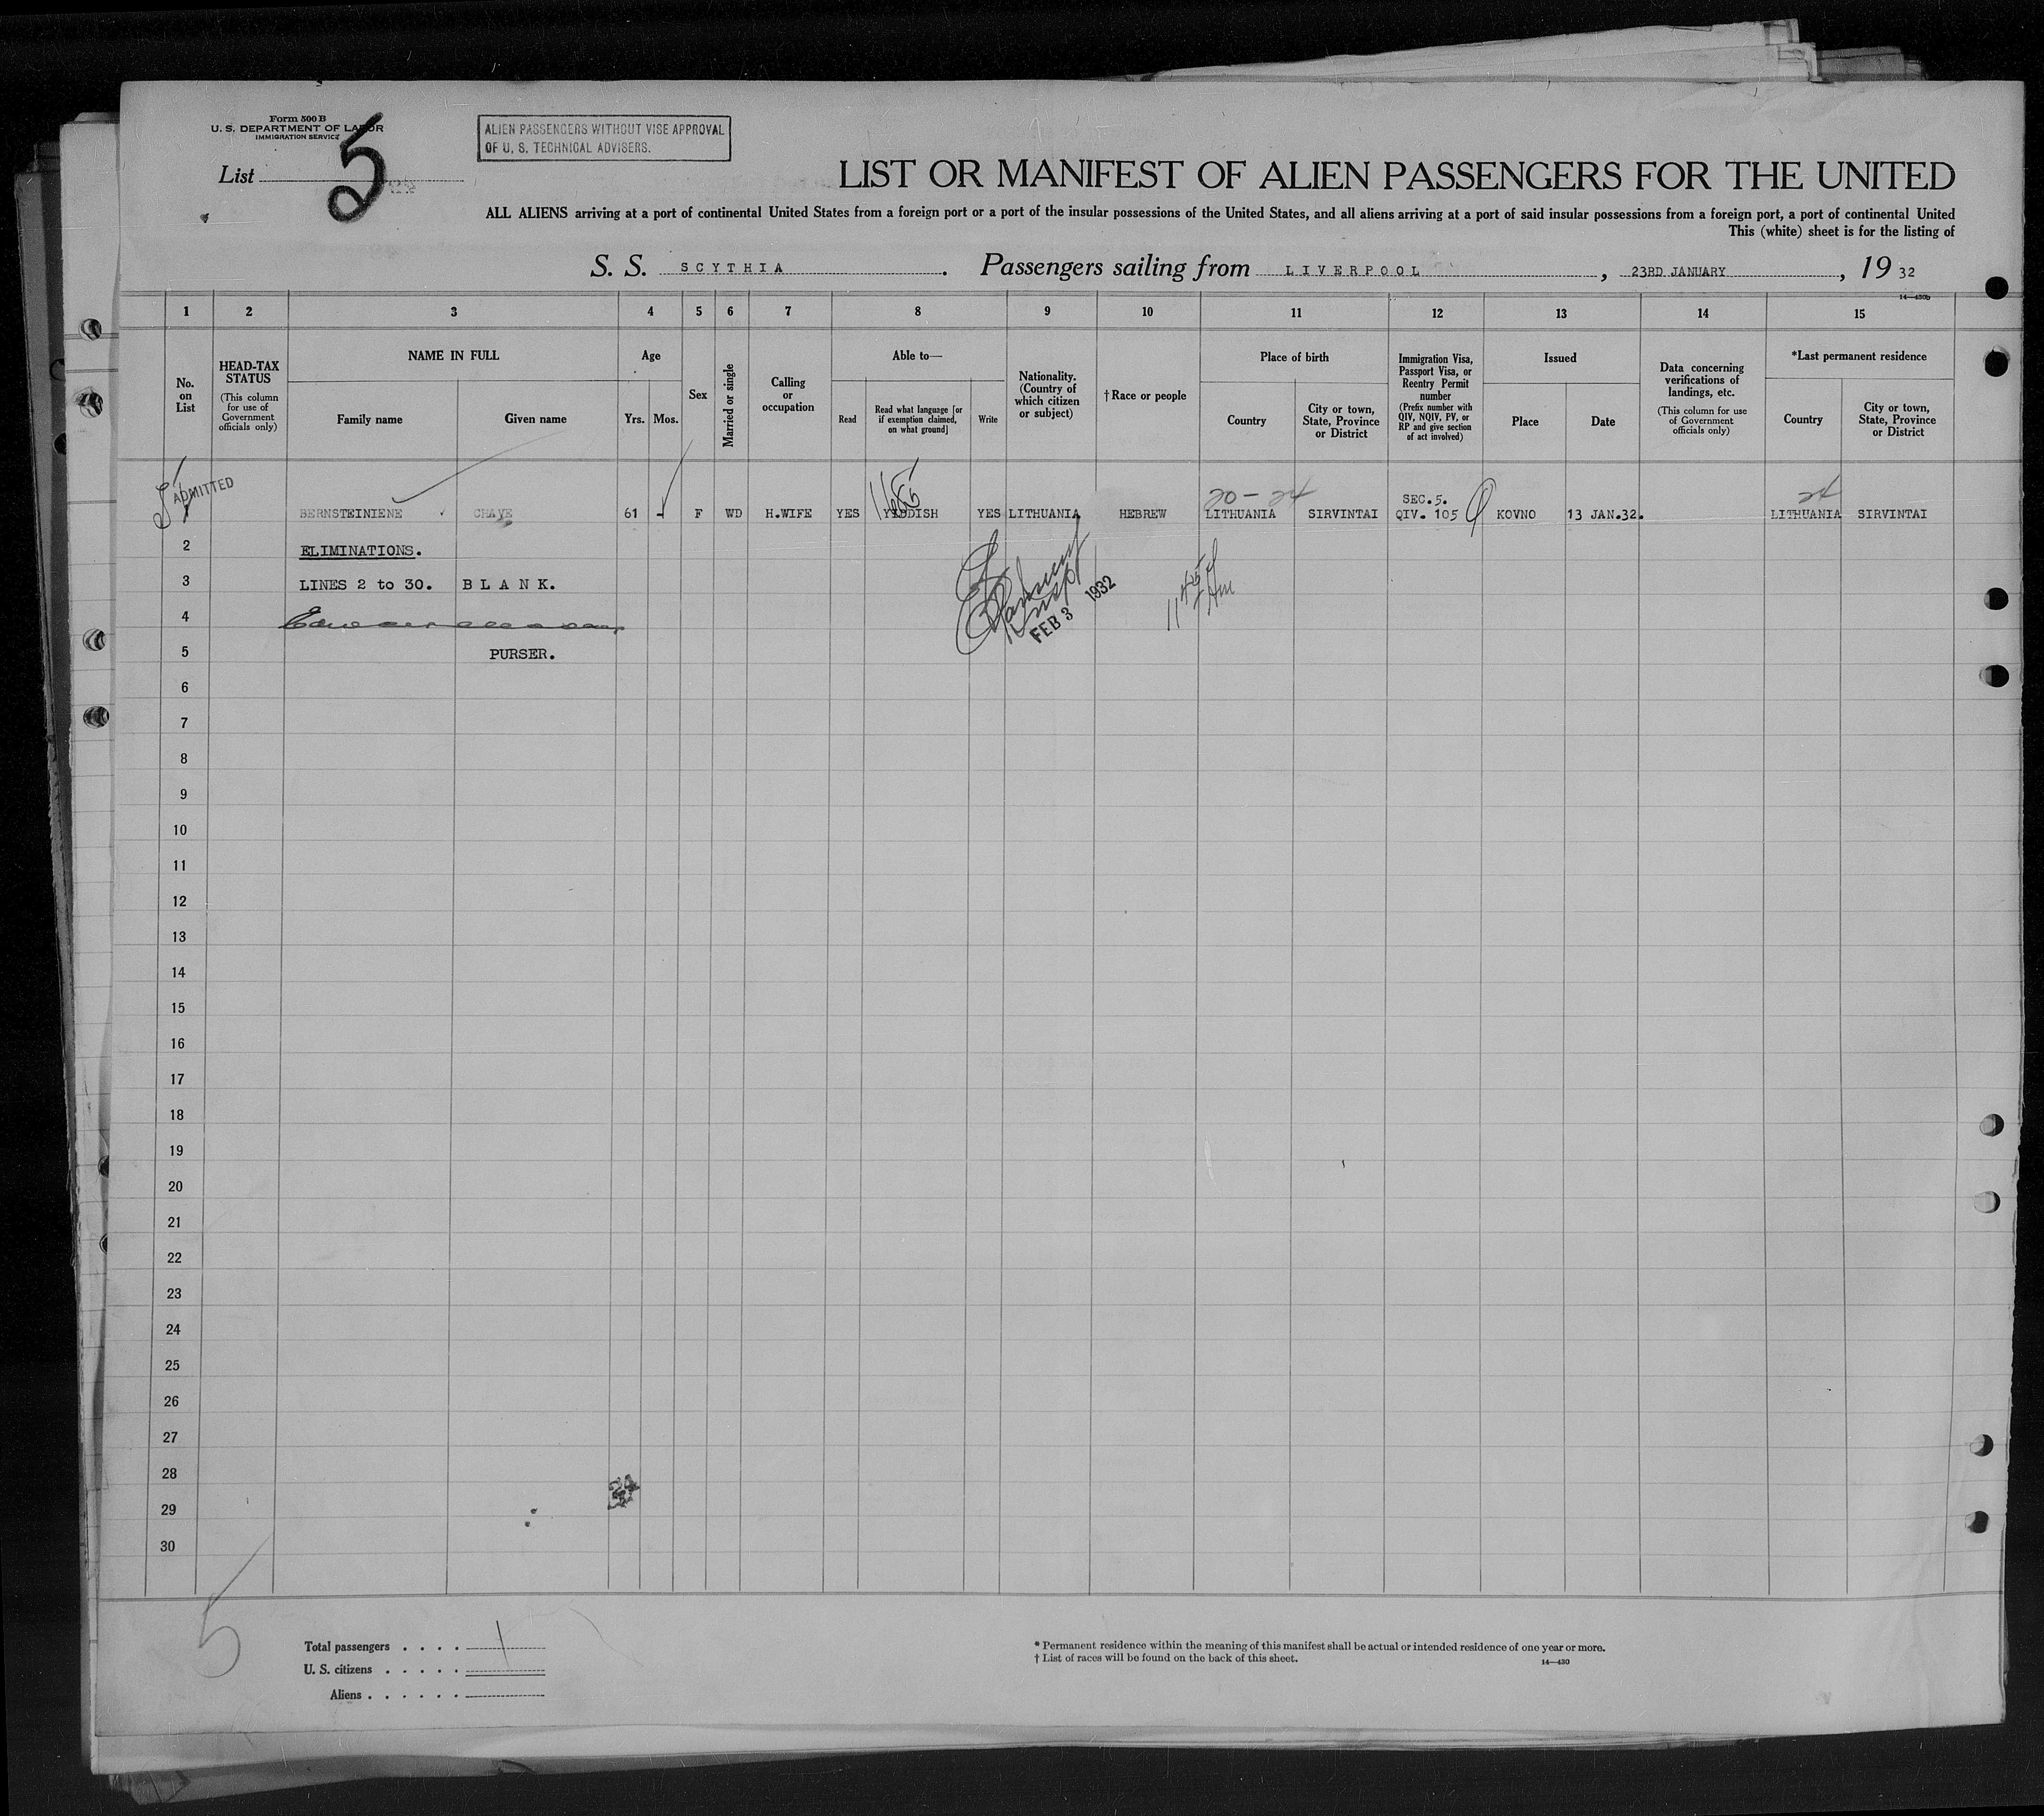 Form 500 B
U. S. DEPARTMENT OF LABOR
IMMIGRATION SERVICE
List 5
ALIEN PASSENGERS WITHOUT VISE APPROVAL
OF U. S. TECHNICAL ADVISERS.
LIST OR MANIFEST OF ALIEN PASSENGERS FOR THE UNITED
ALL ALIENS arriving at a port of continental United States from a foreign port or a port of the insular possessions of the United States, and all aliens arriving at a port of said insular possessions from a foreign port, a port of continental United
This (white) sheet is for the listing of
S. S. SCYTHIA. Passengers sailing from LIVERPOOL, 23RD JANUARY, 19 32
14—430b
1 2 3 4 5 6 7 8 9 10 11 12 13 14 15
No. on List
HEAD-TAX STATUS
(This column for use of Government officials only)
NAME IN FULL
Family name Given name
Age
Yrs. Mos.
Sex
Married or single
Calling or occupation
Able to—
Read
Read what language [or if exemption claimed, on what ground]
Write
Nationality. (Country of which citizen or subject)
†Race or people
Place of birth
Country
City or town, State, Province or District
Immigration Visa, Passport Visa, or Reentry Permit number
(Prefix number with QIV, NQIV, PV, or RP and give section of act involved)
Issued
Place Date
Data concerning verifications of landings, etc.
(This column for use of Government officials only)
*Last permanent residence
Country
City or town, State, Province or District
ADMITTED
20 - 24 SEC.5. 24
BERNSTEINIENE CHAYE 61 - F WD H.WIFE YES YIDDISH YES LITHUANIA HEBREW LITHUANIA SIRVINTAI QIV. 105 KOVNO 13 JAN.32. LITHUANIA SIRVINTAI
2 ELIMINATIONS.
3 LINES 2 to 30. BLANK.
FEB 3 1932
4
5 PURSER.
6
7
8
9
10
11
12
13
14
15
16
17
18
19
20
21
22
23
24
25
26
27
28
29
30
5
Total passengers . . . . 1
U. S. citizens . . . . .
Aliens . . . . . .
* Permanent residence within the meaning of this manifest shall be actual or intended residence of one year or more.
† List of races will be found on the back of this sheet.
14—430